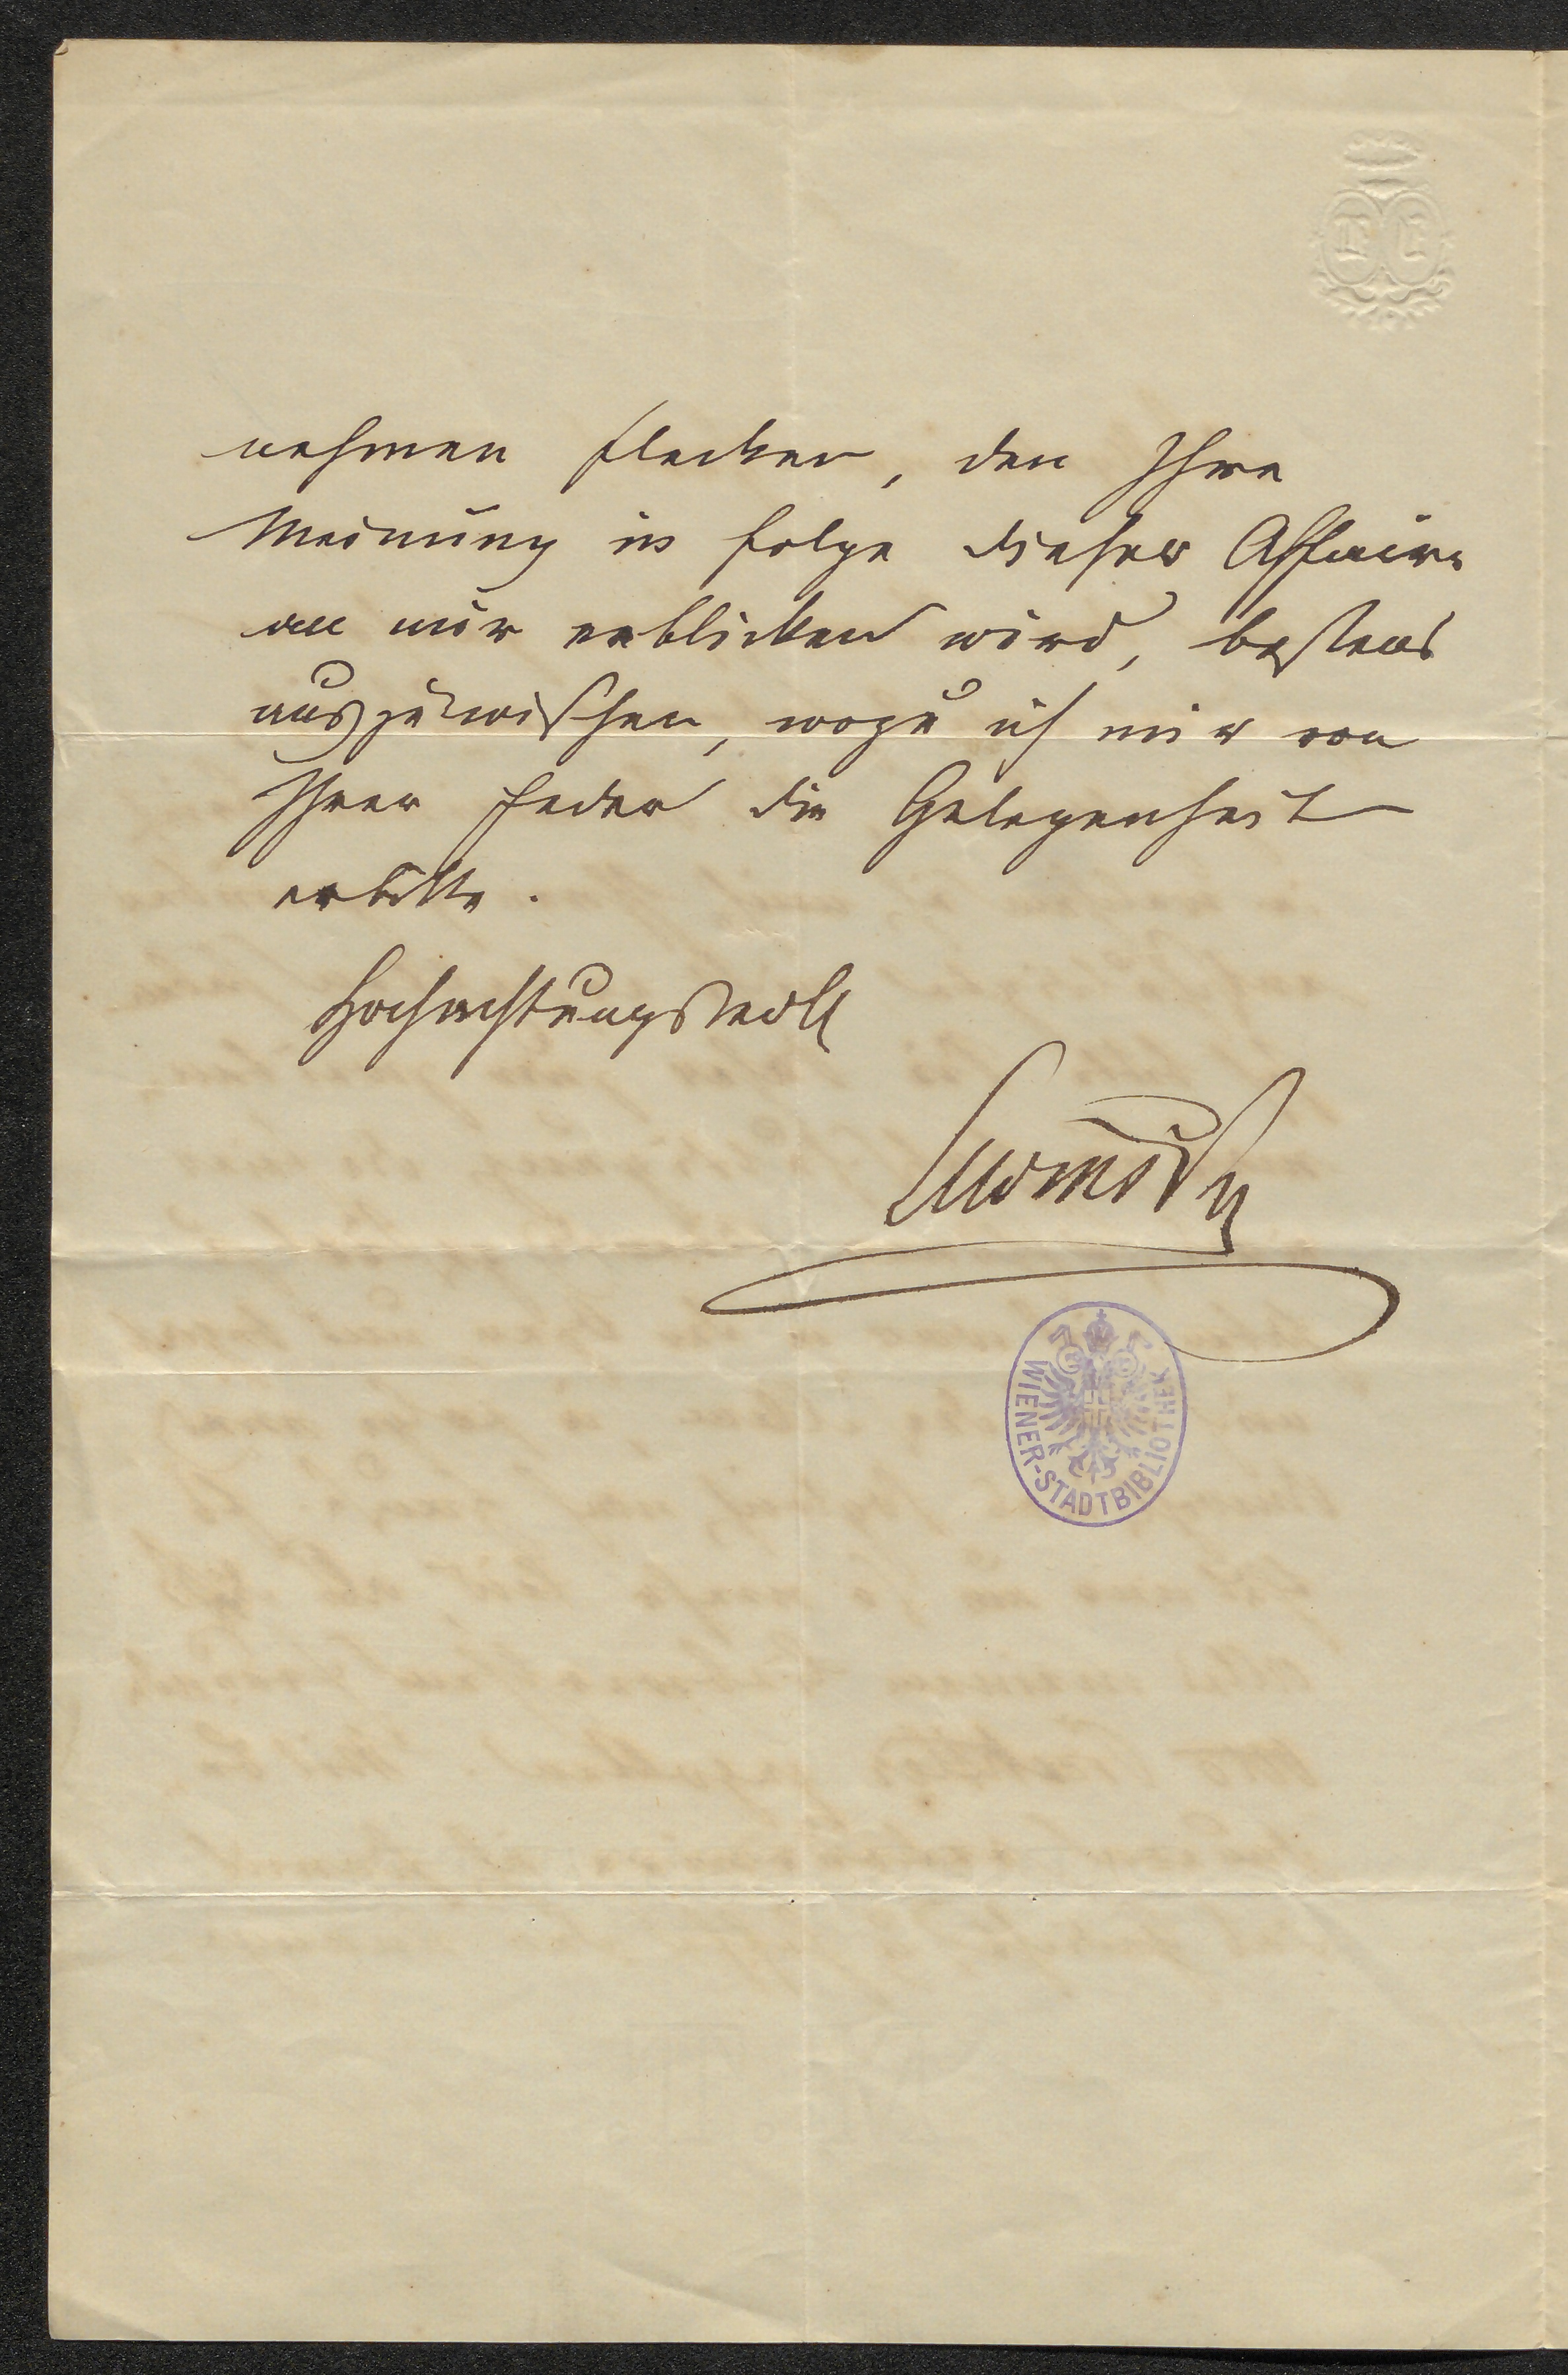 nehmen Flecken, den Ihre
Meinung in Folge dieser Affaire
an mir erblicken wird, bestens
auszuwischen, wozu ich mir von
Ihrer Feder die Gelegenheit
erbitte.
Hochachtungsvoll
WIENER-STADTBIBLIOTHEK